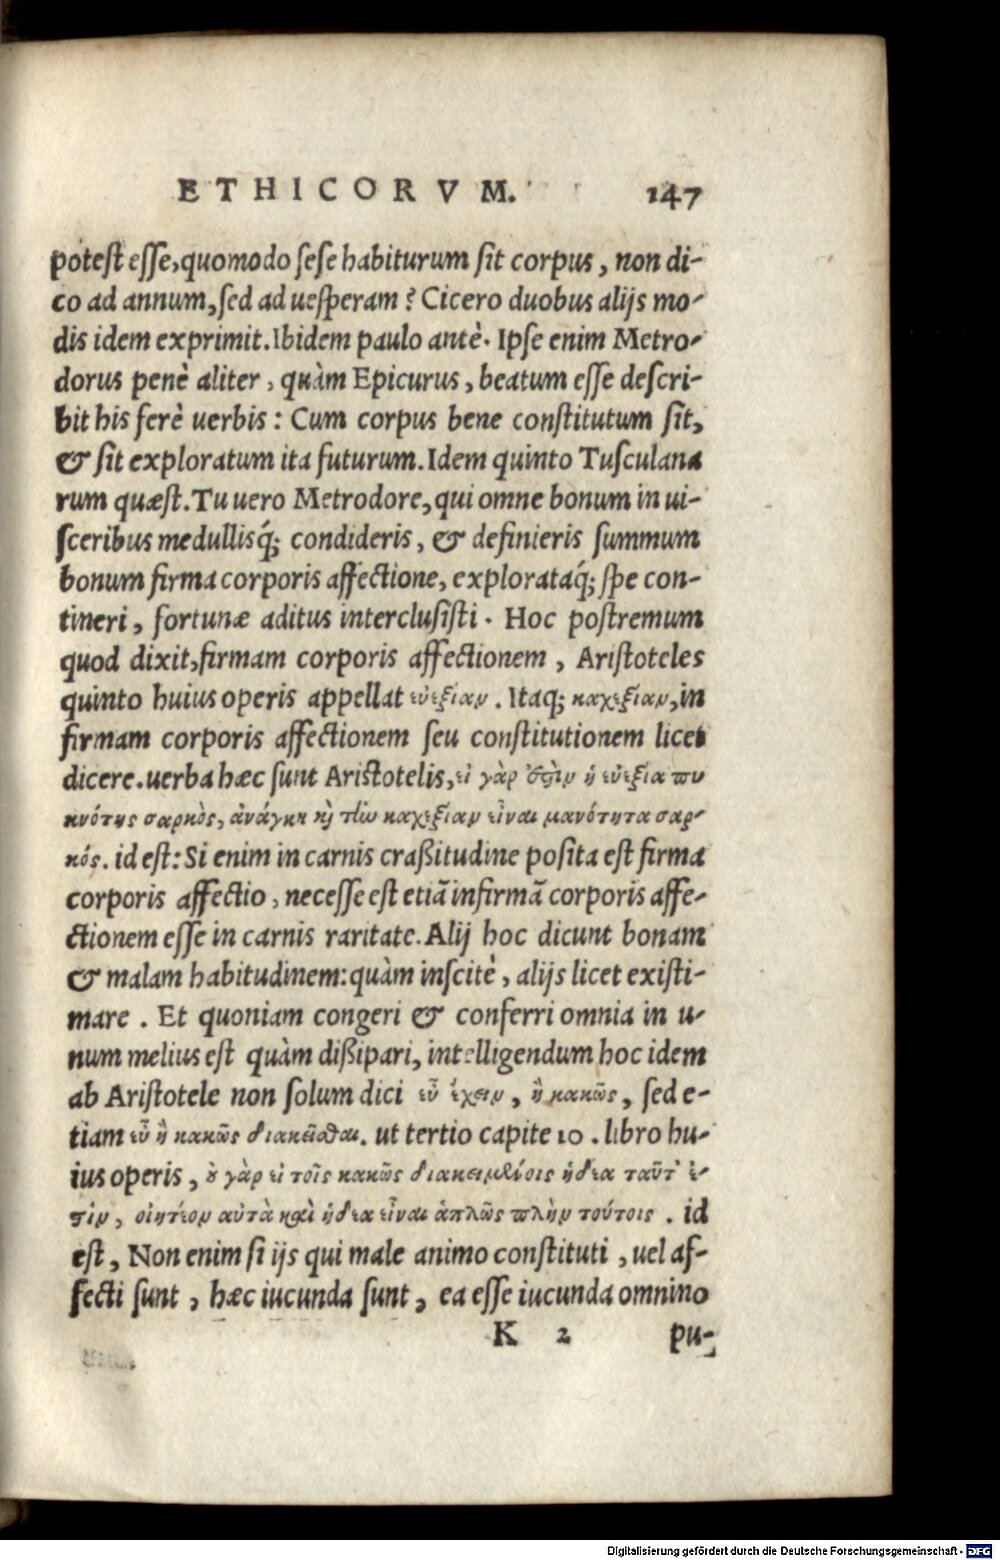 ETHICORVM. 147
potest esse, quomodo sese habiturum sit corpus, non di-
co ad annum, sed ad uesperam? Cicero duobus alijs mo-
dis idem exprimit. Ibidem paulo antè. Ipse enim Metro-
dorus penè aliter, quàm Epicurus, beatum esse descri-
bit his ferè uerbis: Cum corpus bene constitutum sit,
& sit exploratum ita futurum. Idem quinto Tusculana
rum quæst. Tu uero Metrodore, qui omne bonum in ui-
sceribus medullisq́; condideris, & definieris summum
bonum firma corporis affectione, explorataq́; spe con-
tineri, fortunæ aditus interclusisti. Hoc postremum
quod dixit, firmam corporis affectionem, Aristoteles
quinto huius operis appellat εὐεξίαν. Itaq; καχεξίαν, in
firmam corporis affectionem seu constitutionem licet
dicere. uerba hæc sunt Aristotelis, εἰ γὰρ ὅστιν ἡ εὐεξία πυ
κνότης σαρκὸς, ἀνάγκη κὶ τὴν καχεξίαν εἶναι μανότητα σαρ-
κός. id est: Si enim in carnis craßitudine posita est firma
corporis affectio, necesse est etiã infirmã corporis affe-
ctionem esse in carnis raritate. Alij hoc dicunt bonam
& malam habitudinem: quàm inscitè, alijs licet existi-
mare. Et quoniam congeri & conferri omnia in u-
num melius est quàm dißipari, intelligendum hoc idem
ab Aristotele non solum dici εὖ ἔχειν, ἢ κακῶς, sed e-
tiam εὖ ἢ κακῶς διακεῖσθαι. ut tertio capite 10. libro hu-
ius operis, οὐ γὰρ εἰ τοῖς κακῶς διακειμένοις ἡδέα ταῦτ' ἐ-
στὶν, οἰητέον αὐτὰ καὶ ἡδέα εἶναι ἁπλῶς πλὴν τούτοις. id
est, Non enim si ijs qui male animo constituti, uel af-
fecti sunt, hæc iucunda sunt, ea esse iucunda omnino
K 2 pu-
Digitalisierung gefördert durch die Deutsche Forschungsgemeinschaft - DFG